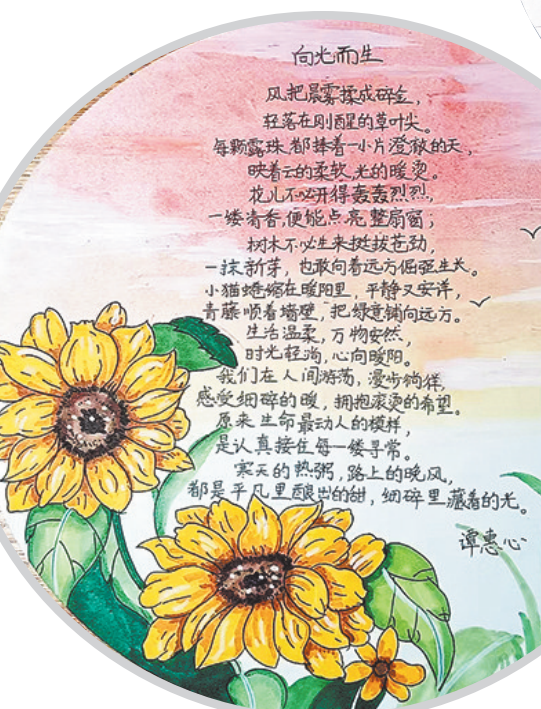 向光而生
风把晨雾揉成碎金，
轻落在刚醒的草叶尖。
每颗露珠都捧着一小片澄澈的天，
映着云的柔软，光的暖烫。
花儿不必开得轰轰烈烈，
一缕清香，便能点亮整扇窗；
树木不必生来挺拔苍劲，
一抹新芽，也敢向着远方倔强生长。
小猫蜷缩在暖阳里，平静又安详，
青藤顺着墙壁，把绿意铺向远方。
生活温柔，万物安然，
时光轻淌，心向暖阳。
我们在人间游荡，漫步徜徉，
感受细碎的暖，拥抱滚烫的希望。
原来生命最动人的模样，
是认真接住每一缕寻常。
寒天的热粥，路上的晚风，
都是平凡里酿出的甜，细碎里藏着的光。
谭惠心